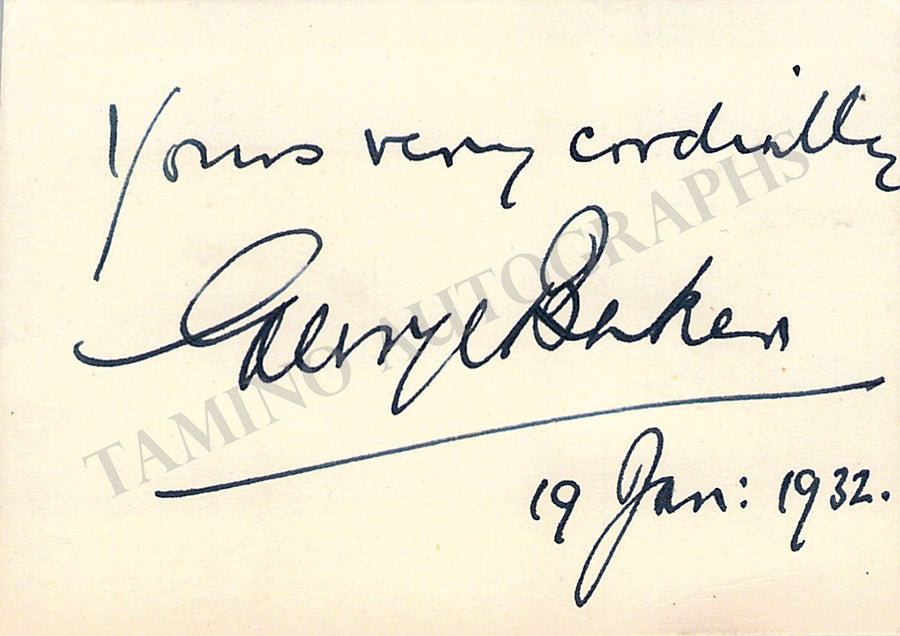 Yours very cordially
George Baker
19 Jan: 1932.
TAMINO AUTOGRAPHS